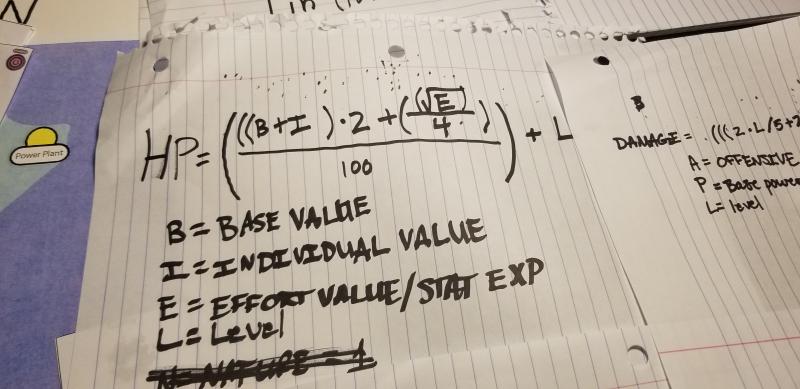 HP = (((B+I)·2+((√E)/4))/100) + L
B = BASE VALUE
I = INDIVIDUAL VALUE
E = EFFORT VALUE/STAT EXP
L = Level
N = NATURE = 1
Power Plant
B
DAMAGE = (((2·L/5+2
A = OFFENSIVE
P = Base power
L = level